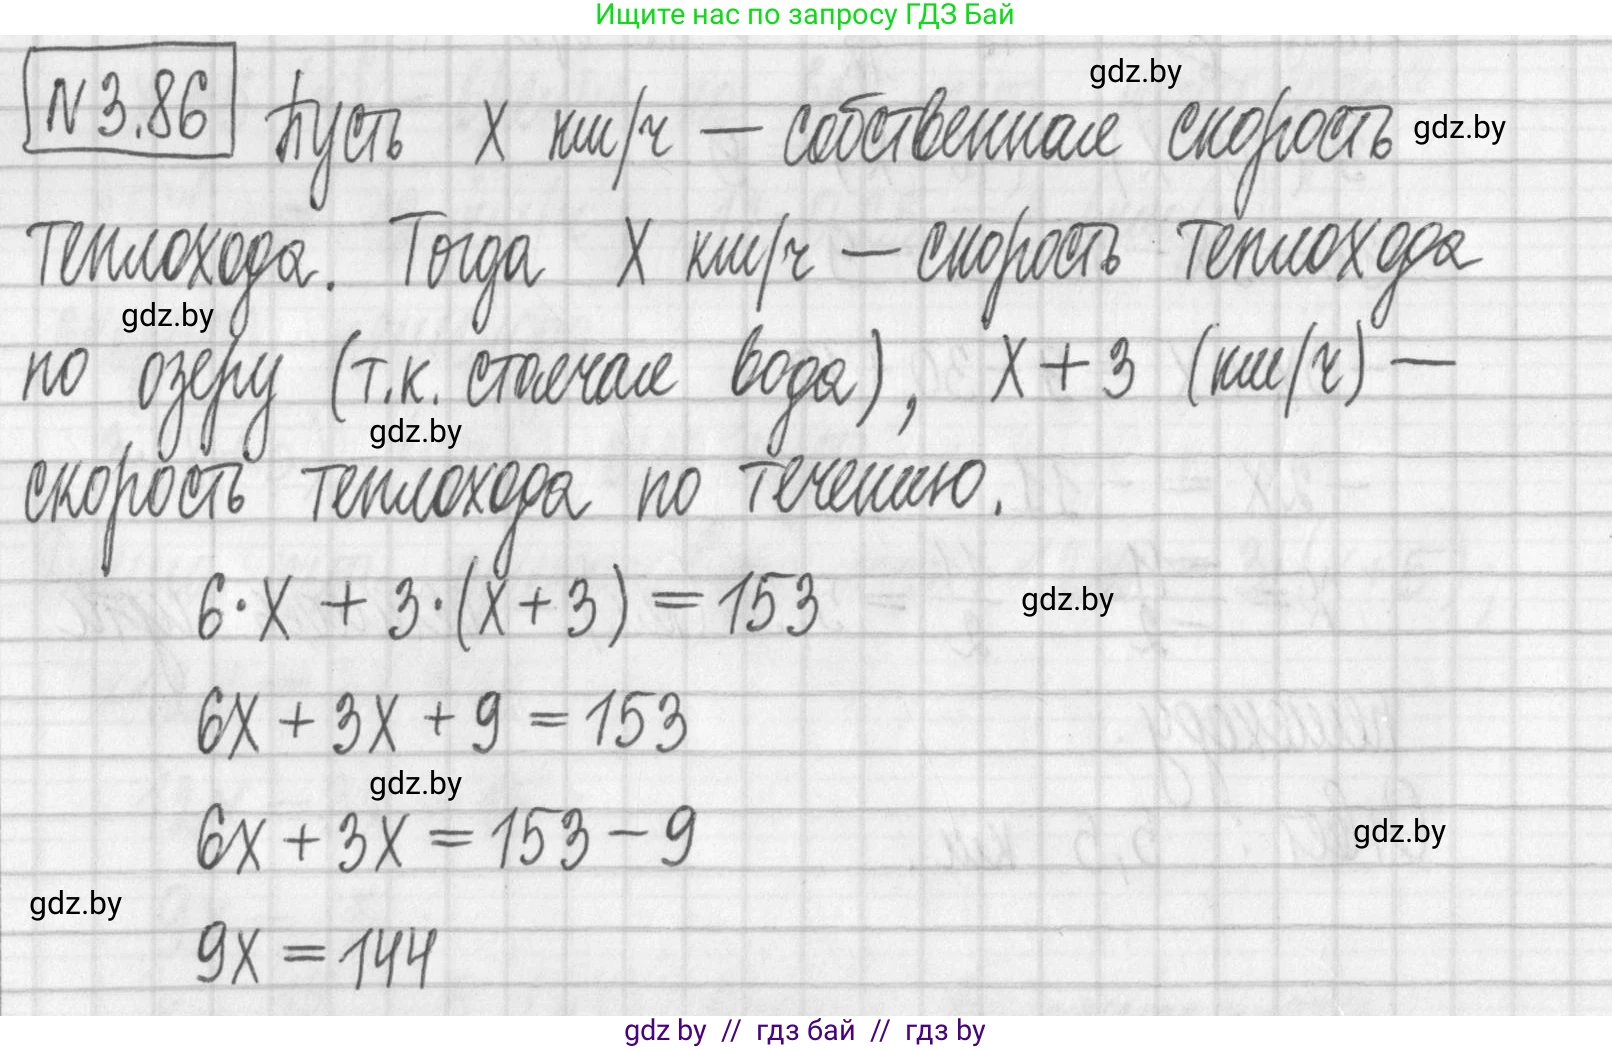 Ищите нас по запросу ГДЗ Бай
gdz.by
N 3.86 Пусть x км/ч — собственная скорость
gdz.by
теплохода. Тогда x км/ч — скорость теплохода
gdz.by
по озеру (т.к. стоячая вода), x + 3 (км/ч) —
gdz.by
скорость теплохода по течению.
6·x + 3·(x+3) = 153
gdz.by
6x + 3x + 9 = 153
gdz.by
6x + 3x = 153 - 9
gdz.by
gdz.by
9x = 144
gdz by // гдз бай // гдз by